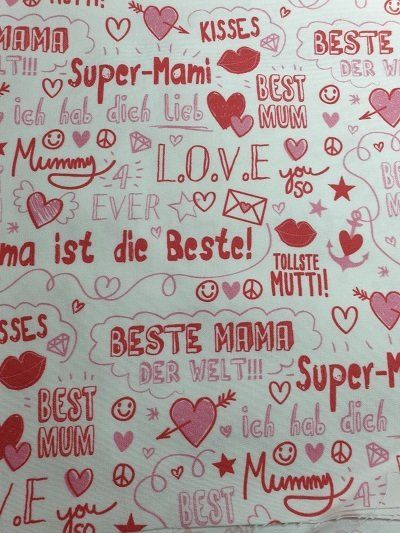 MUTTI!
KISSES
MAMA
BESTE
WELT!!!
Super-Mami
DER WELT
BEST
MUM
ich hab dich lieb
Mummy
L.O.V.E
you
SO
4
EVER
ma ist die Beste!
TOLLSTE
MUTTI!
KISSES
BESTE MAMA
DER WELT!!!
Super-M
BEST
MUM
ich hab dich
Mummy
V.E
you
so
BEST
4